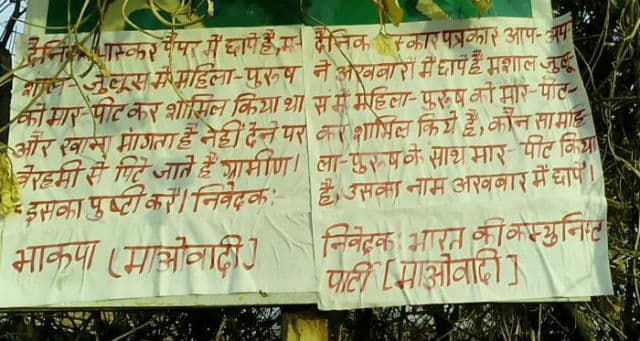 दैनिक पेपर में छापे हैं, म-
शाल- जुलूस में महिला- पुरुष
को मार- पीट कर शामिल किया था
और खाना मांगता है नहीं देने पर
बेरहमी से पिटे जाते हैं ग्रामीण।
इसका पुष्टी करें। निवेदक:-
भाकपा (माओवादी)
दैनिक पत्रकार आप- अप-
ने अखबारों में छापे हैं मशाल जुलू-
स में महिला- पुरुष को मार- पीट-
कर शामिल किये हैं, कौन सा महि-
ला- पुरुष के साथ मार- पीट किया
है, उसका नाम अखबार में छापें।
निवेदक: भारत की कम्युनिस्ट
पार्टी [माओवादी]